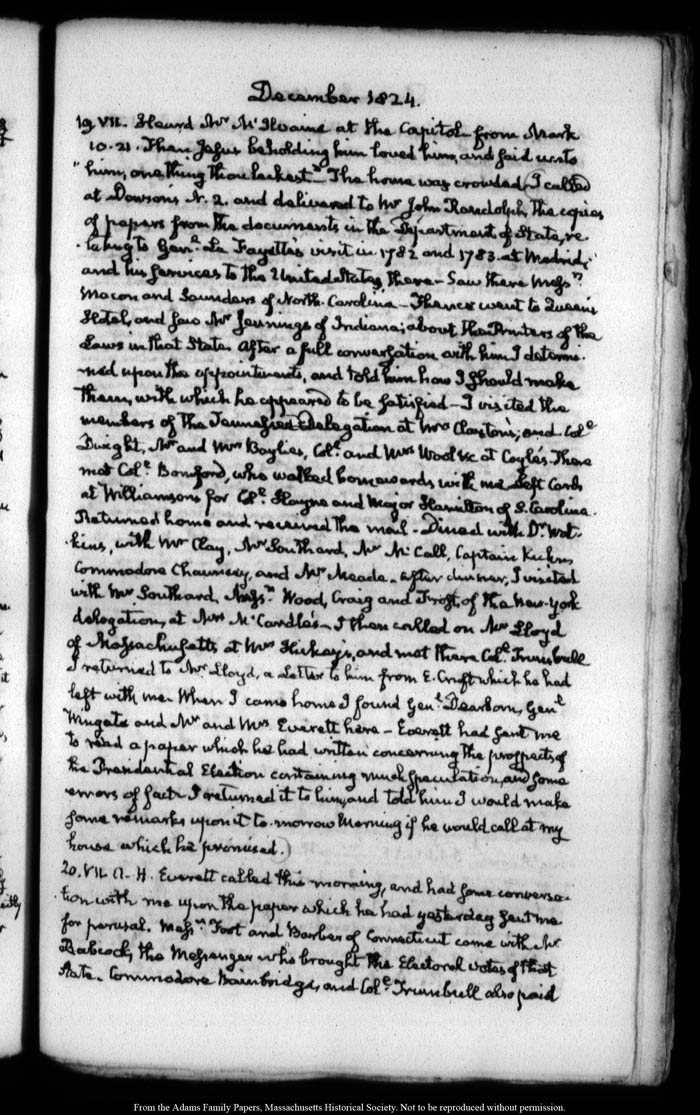 December 1824.
19. VII. Heard Mr McIlvaine at the Capitol from Mark
10. 21. Then Jesus beholding him loved him, and said unto
"him, one thing thou lackest" - The house was crowded. I called
at Dawson's N. 2. and delivered to Mr John Randolph, the copies
of papers from the documents in the Department of State, re-
-lating to Genl. La Fayette's visit in 1782 and 1783. at Madrid,
and his services to the United States, there - Saw there Messrs
Macon and Saunders of North-Carolina - Thence went to Queen's
Hotel, and saw Mr Jennings of Indiana; about the Printers of the
Laws in that State. After a full conversation with him I determi-
-ned upon the appointments, and told him how I should make
them, with which he appeared to be satisfied - I visited the
members of the Tennessee Delegation at Mrs Claxton's; and Coll.
Dwight, Mr and Mrs Baylies, Coll. and Mrs Wool &c at Coyle's. There
met Coll. Bomford, who walked homewards with me. Left Cards
at Williamson's for Coll. Hayne and Major Hamilton of S. Carolina.
Returned home and received the mail - Dined with Dr. Wat-
-kins, with Mr Clay, Mr Southard, Mr McCall, Captain Kuhn,
Commodore Chauncey, and Mr Meade. After dinner, I visited
with Mr Southard, Messrs. Wood, Craig and Frost, of the New-York
delegation, at Mrs McCardle's - I then called on Mr Lloyd
of Massachusetts at Mrs Hickey's, and met there Coll. Trumbull
I returned to Mr Lloyd, a Letter to him from E. Cruft which he had
left with me. When I came home I found Genl. Dearborn, Genl.
Wingate and Mr and Mrs Everett here - Everett had sent me
to read a paper which he had written concerning the prospects of
the Presidential Election containing much speculation, and some
errors of fact. I returned it to him, and told him I would make
some remarks upon it to-morrow Morning if he would call at my
house which he promised.
20. VII. A. H. Everett called this morning, and had some conversa-
-tion with me upon the paper which he had yesterday sent me
for perusal. Messrs. Foot and Barber of Connecticut came with Mr
Babcock, the Messenger who brought the Electoral votes of that
State. Commodore Bainbridge, and Coll. Trumbull also paid
From the Adams Family Papers, Massachusetts Historical Society. Not to be reproduced without permission.